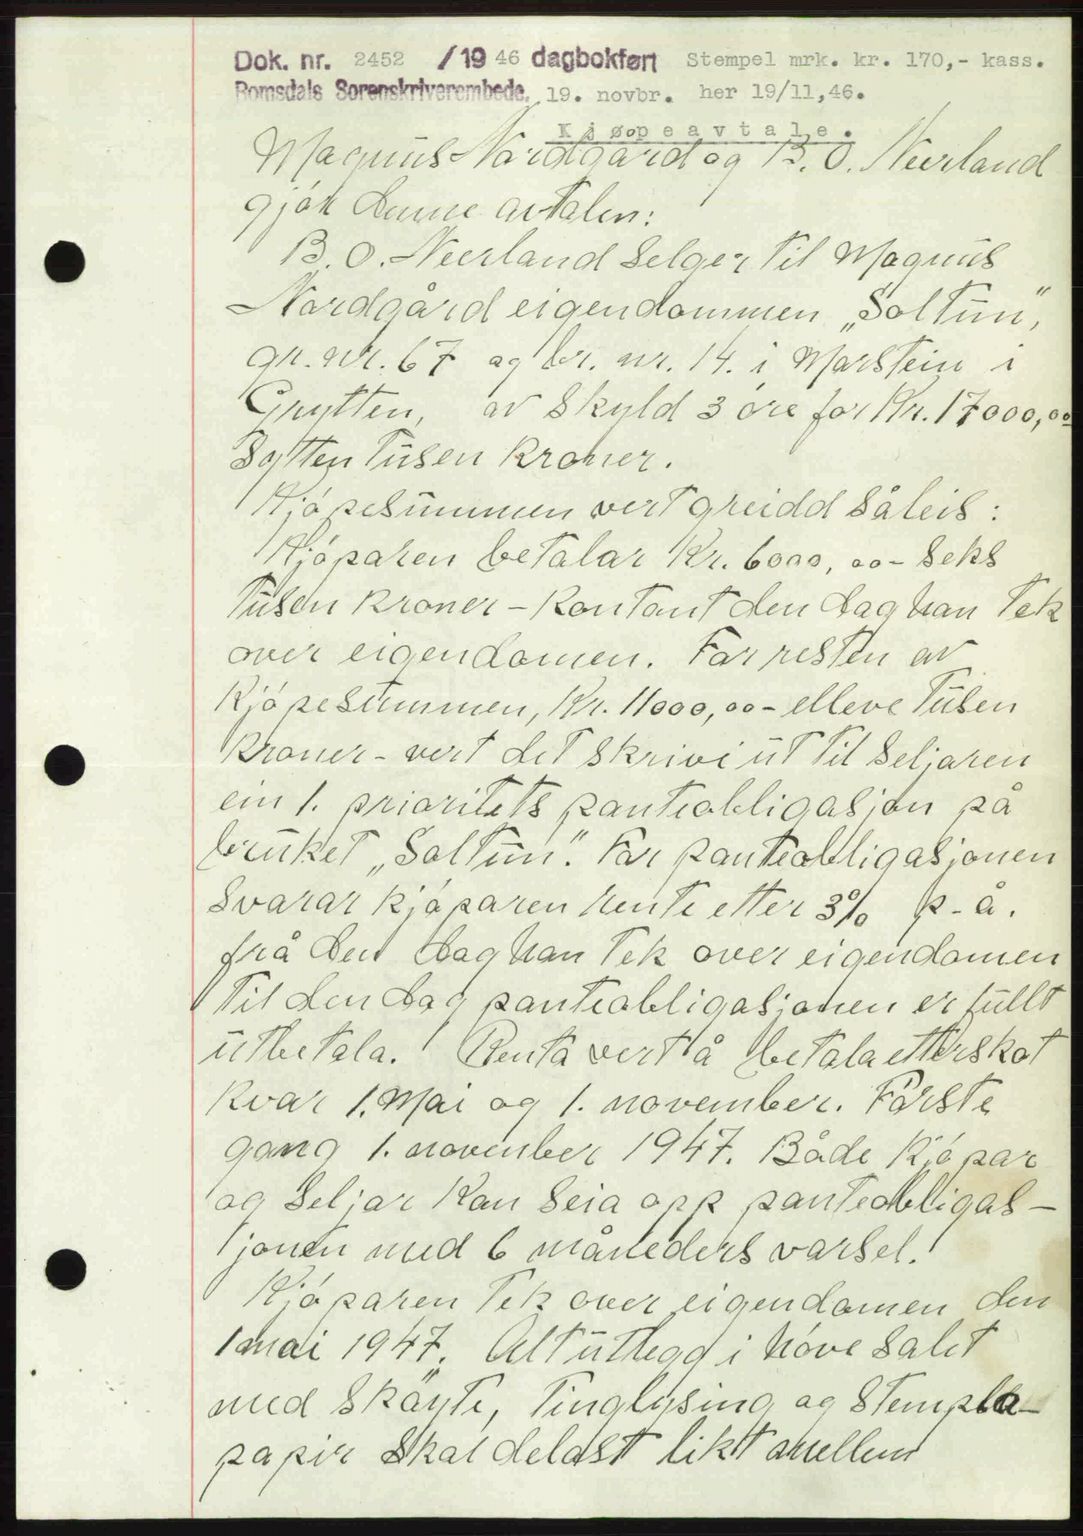 Dok. nr. 2452 /1946 dagbokført Stempel mrk. kr. 170,- kass.
Romsdals Sorenskriverembede. 19. novbr. her 19/11,46.
Kjøpeavtale.
Magnus Nordgård og B. O. Neerland
gjör denne avtalen:
B. O. Neerland selger til Magnus
Nordgård eigendommen „Soltun",
gr. nr. 67 og br. nr. 14. i Marstein i
Grytten, av skyld 3 öre for Kr. 17000,00
Sytten tusen kroner.
Kjöpesummen vert greidd såleis:
Kjöparen betalar Kr. 6000,00 - seks
tusen kroner - kontant den dag han tek
over eigendomen. For resten av
kjöpesummen, Kr. 11000,00 - elleve tusen
kroner - vert det skrivi ut til seljaren
ein 1. prioritets panteobligasjon på
bruket „Soltun". For panteobligasjonen
svarar kjöparen rente etter 3% p - å.
frå den dag han tek over eigendomen
til den dag panteobligasjonen er fullt
utbetala. Renta vert å betala etterskot
kvar 1. Mai og 1. november. Förste
gang 1. november 1947. Både kjöpar
og seljar kan seia opp panteobligas-
jonen med 6 måneders varsel.
Kjöparen tek over eigendomen den
1 mai 1947. Alt utlegg i höve salet
med sköyte, tinglysing og stempla-
papir skal delast likt mellem